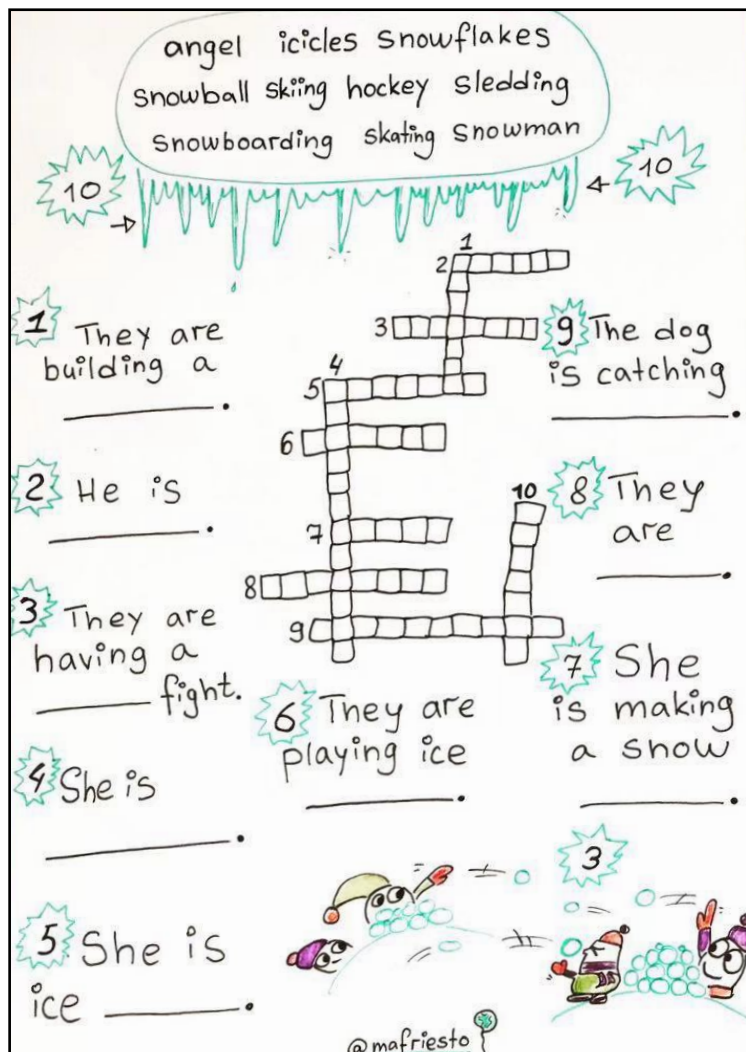 angel icicles snowflakes
snowball skiing hockey sledding
snowboarding skating snowman
10
10
1
2
3
4
5
6
7
10
8
9
1 They are
building a
.
2 He is
.
3 They are
having a
fight.
4 She is
.
5 She is
ice .
6 They are
playing ice
.
9 The dog
is catching
.
8 They
are
.
7 She
is making
a snow
.
3
@mafriesto